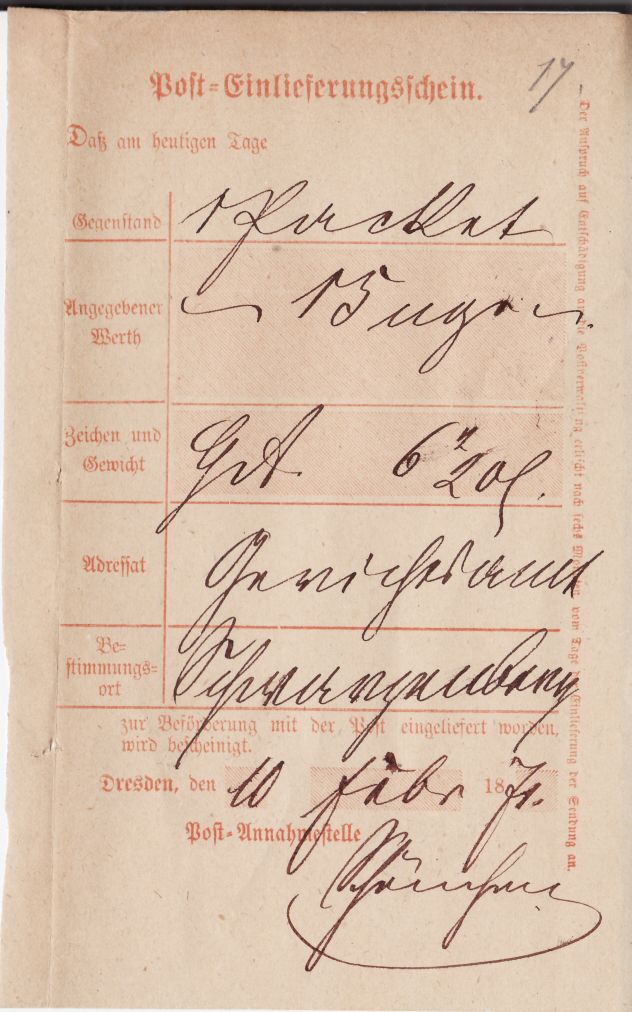 17
Post-Einlieferungsschein.
Daß am heutigen Tage
Gegenstand 1 Packet
Angegebener
Werth
Zeichen und
Gewicht
Adressat Gerichtsamt
Be-
stimmungs-
ort Schwarzenberg
zur Beförderung mit der Post eingeliefert worden,
wird bescheinigt.
Dresden, den 10 Febr 18
Post-Annahmestelle
Der Anspruch auf Entschädigung an die Postverwaltung erlischt nach sechs Monaten, vom Tage der Einlieferung der Sendung an.